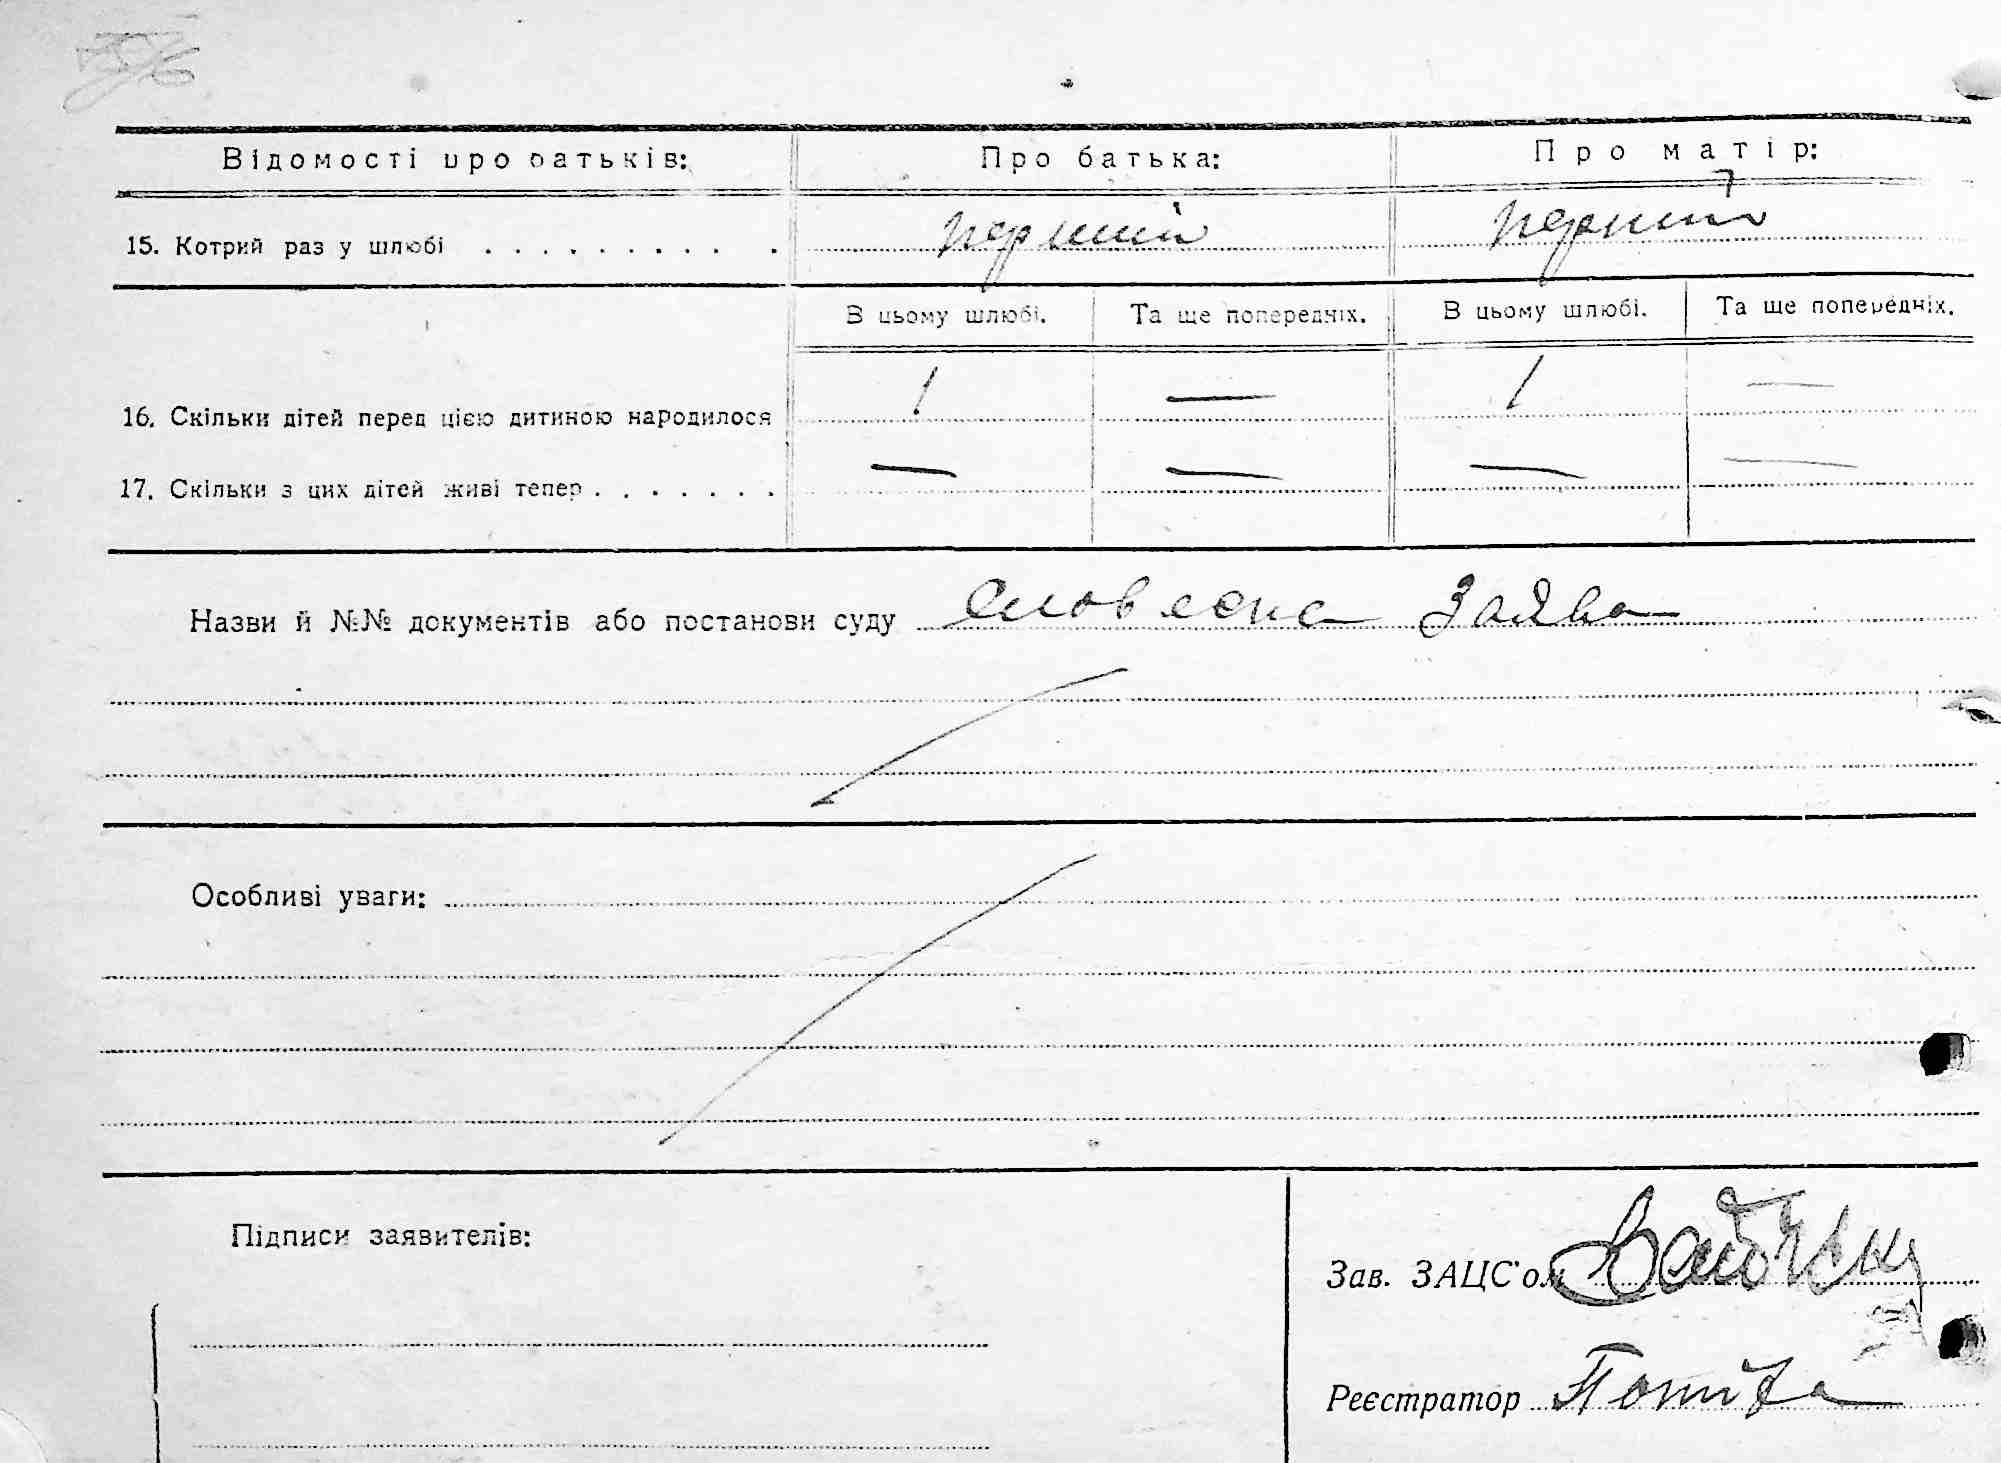 Відомості про батьків:
Про батька:
Про матір:
15. Котрий раз у шлюбі . . . . . . . . . . .
перший
перший
В цьому шлюбі.
Та ще попередніх.
В цьому шлюбі.
Та ще попередніх.
16. Скільки дітей перед цією дитиною народилося
1
—
1
—
17. Скільки з цих дітей живі тепер . . . . . . .
—
—
—
—
Назви й №№ документів або постанови суду словесна Заява
Особливі уваги:
Підписи заявителів:
Зав. ЗАЦС'ом
Реєстратор